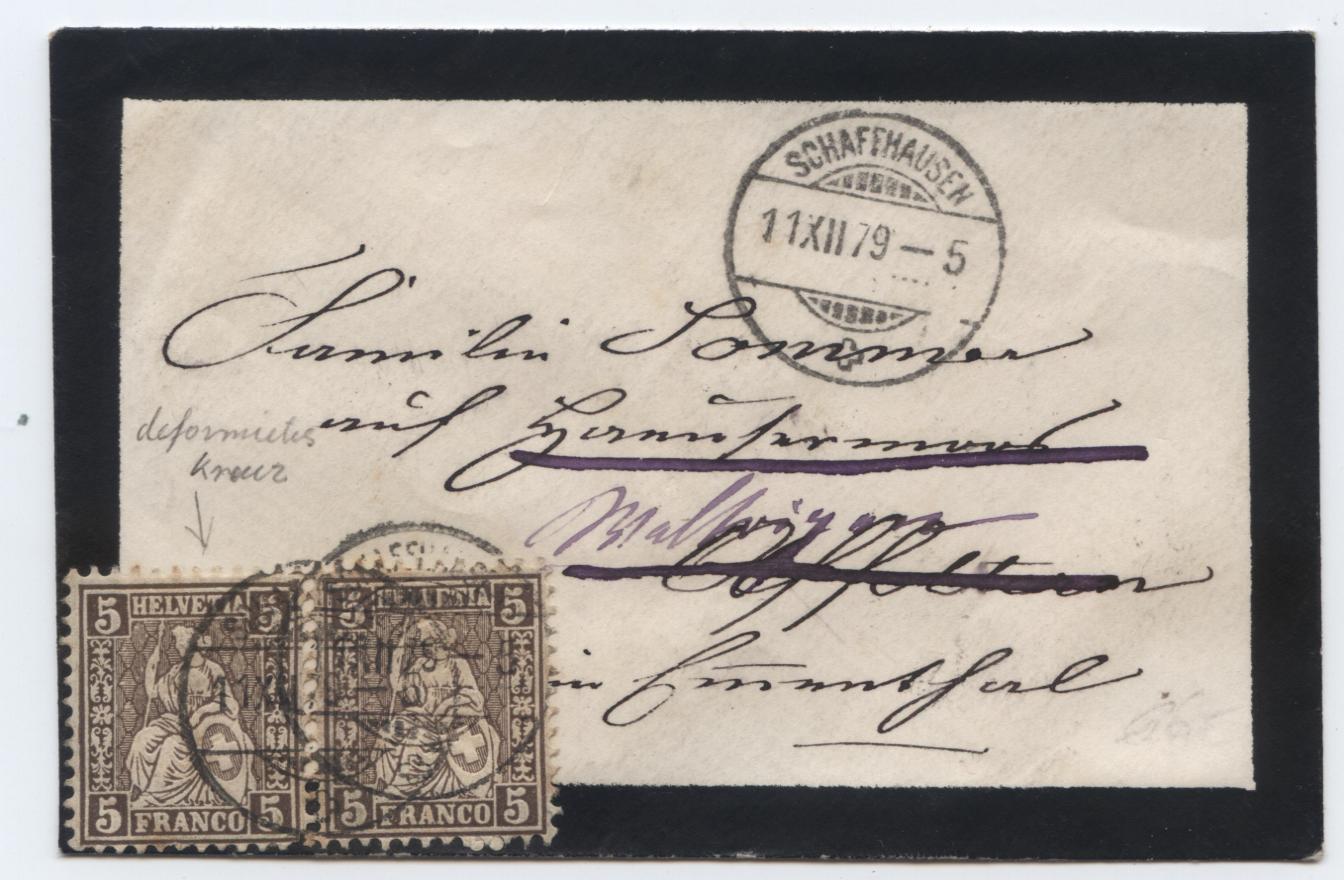 SCHAFFHAUSEN
11 XII 79 — 5
Familie Sommer
auf Haeusermoos
deformiertes
Kreuz
Affoltern
in Emmenthal
5 HELVETIA 5
5 FRANCO 5
5 HELVETIA 5
5 FRANCO 5